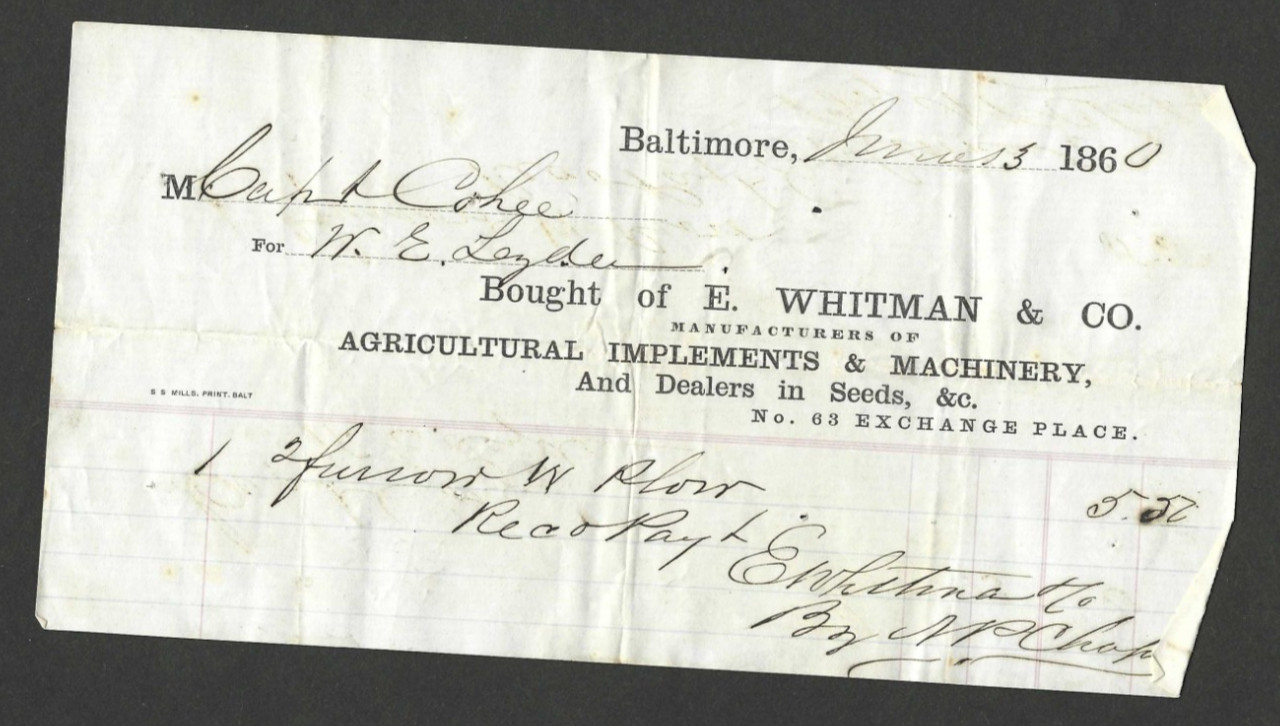 Baltimore, June 13 1860
M Capt Cohee
For W. E. Leyden.
Bought of E. WHITMAN & CO.
MANUFACTURERS OF
AGRICULTURAL IMPLEMENTS & MACHINERY,
And Dealers in Seeds, &c.
S S MILLS, PRINT. BALT
No. 63 EXCHANGE PLACE.
1 2 furrow W Plow 5.50
Recd Payt
E Whitman & Co
By N P